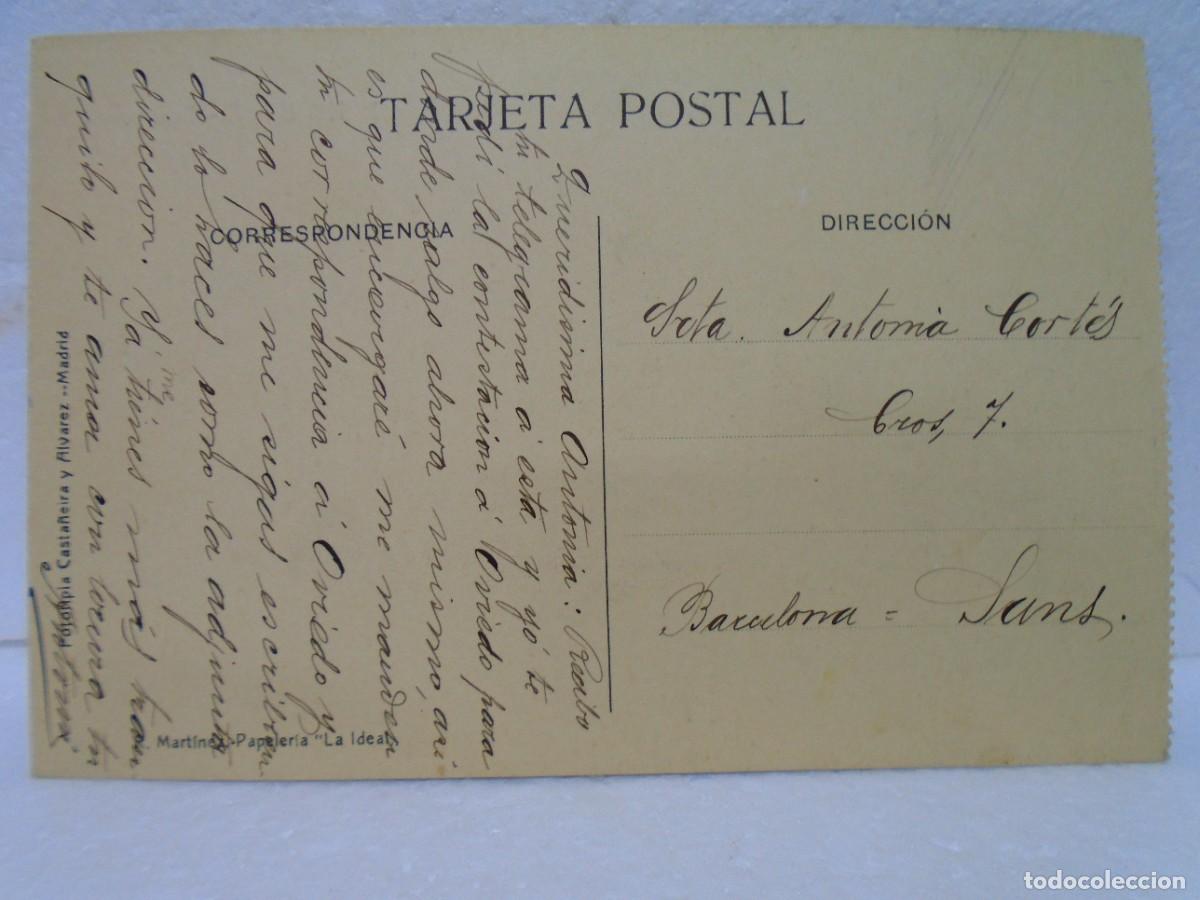 TARJETA POSTAL
CORRESPONDENCIA
DIRECCIÓN
Queridísima Antonia: Recibo
tu telegrama á esta y yó te
pedí la contestacion á Oviedo para
donde salgo ahora mismo, asi
es que encargaré me manden
tu correspondencia á Oviedo y
para que me sigas escribien
do lo haces como la adjunta
direccion. Yá me tienes más tran
quilo y te ama con locura tu
Antonio
Srta. Antonia Cortés
Cros, 7.
Barcelona = Sans.
Fototipia Castañeira y Alvarez.--Madrid
Martínez.-Papelería "La Ideal"
todocoleccion